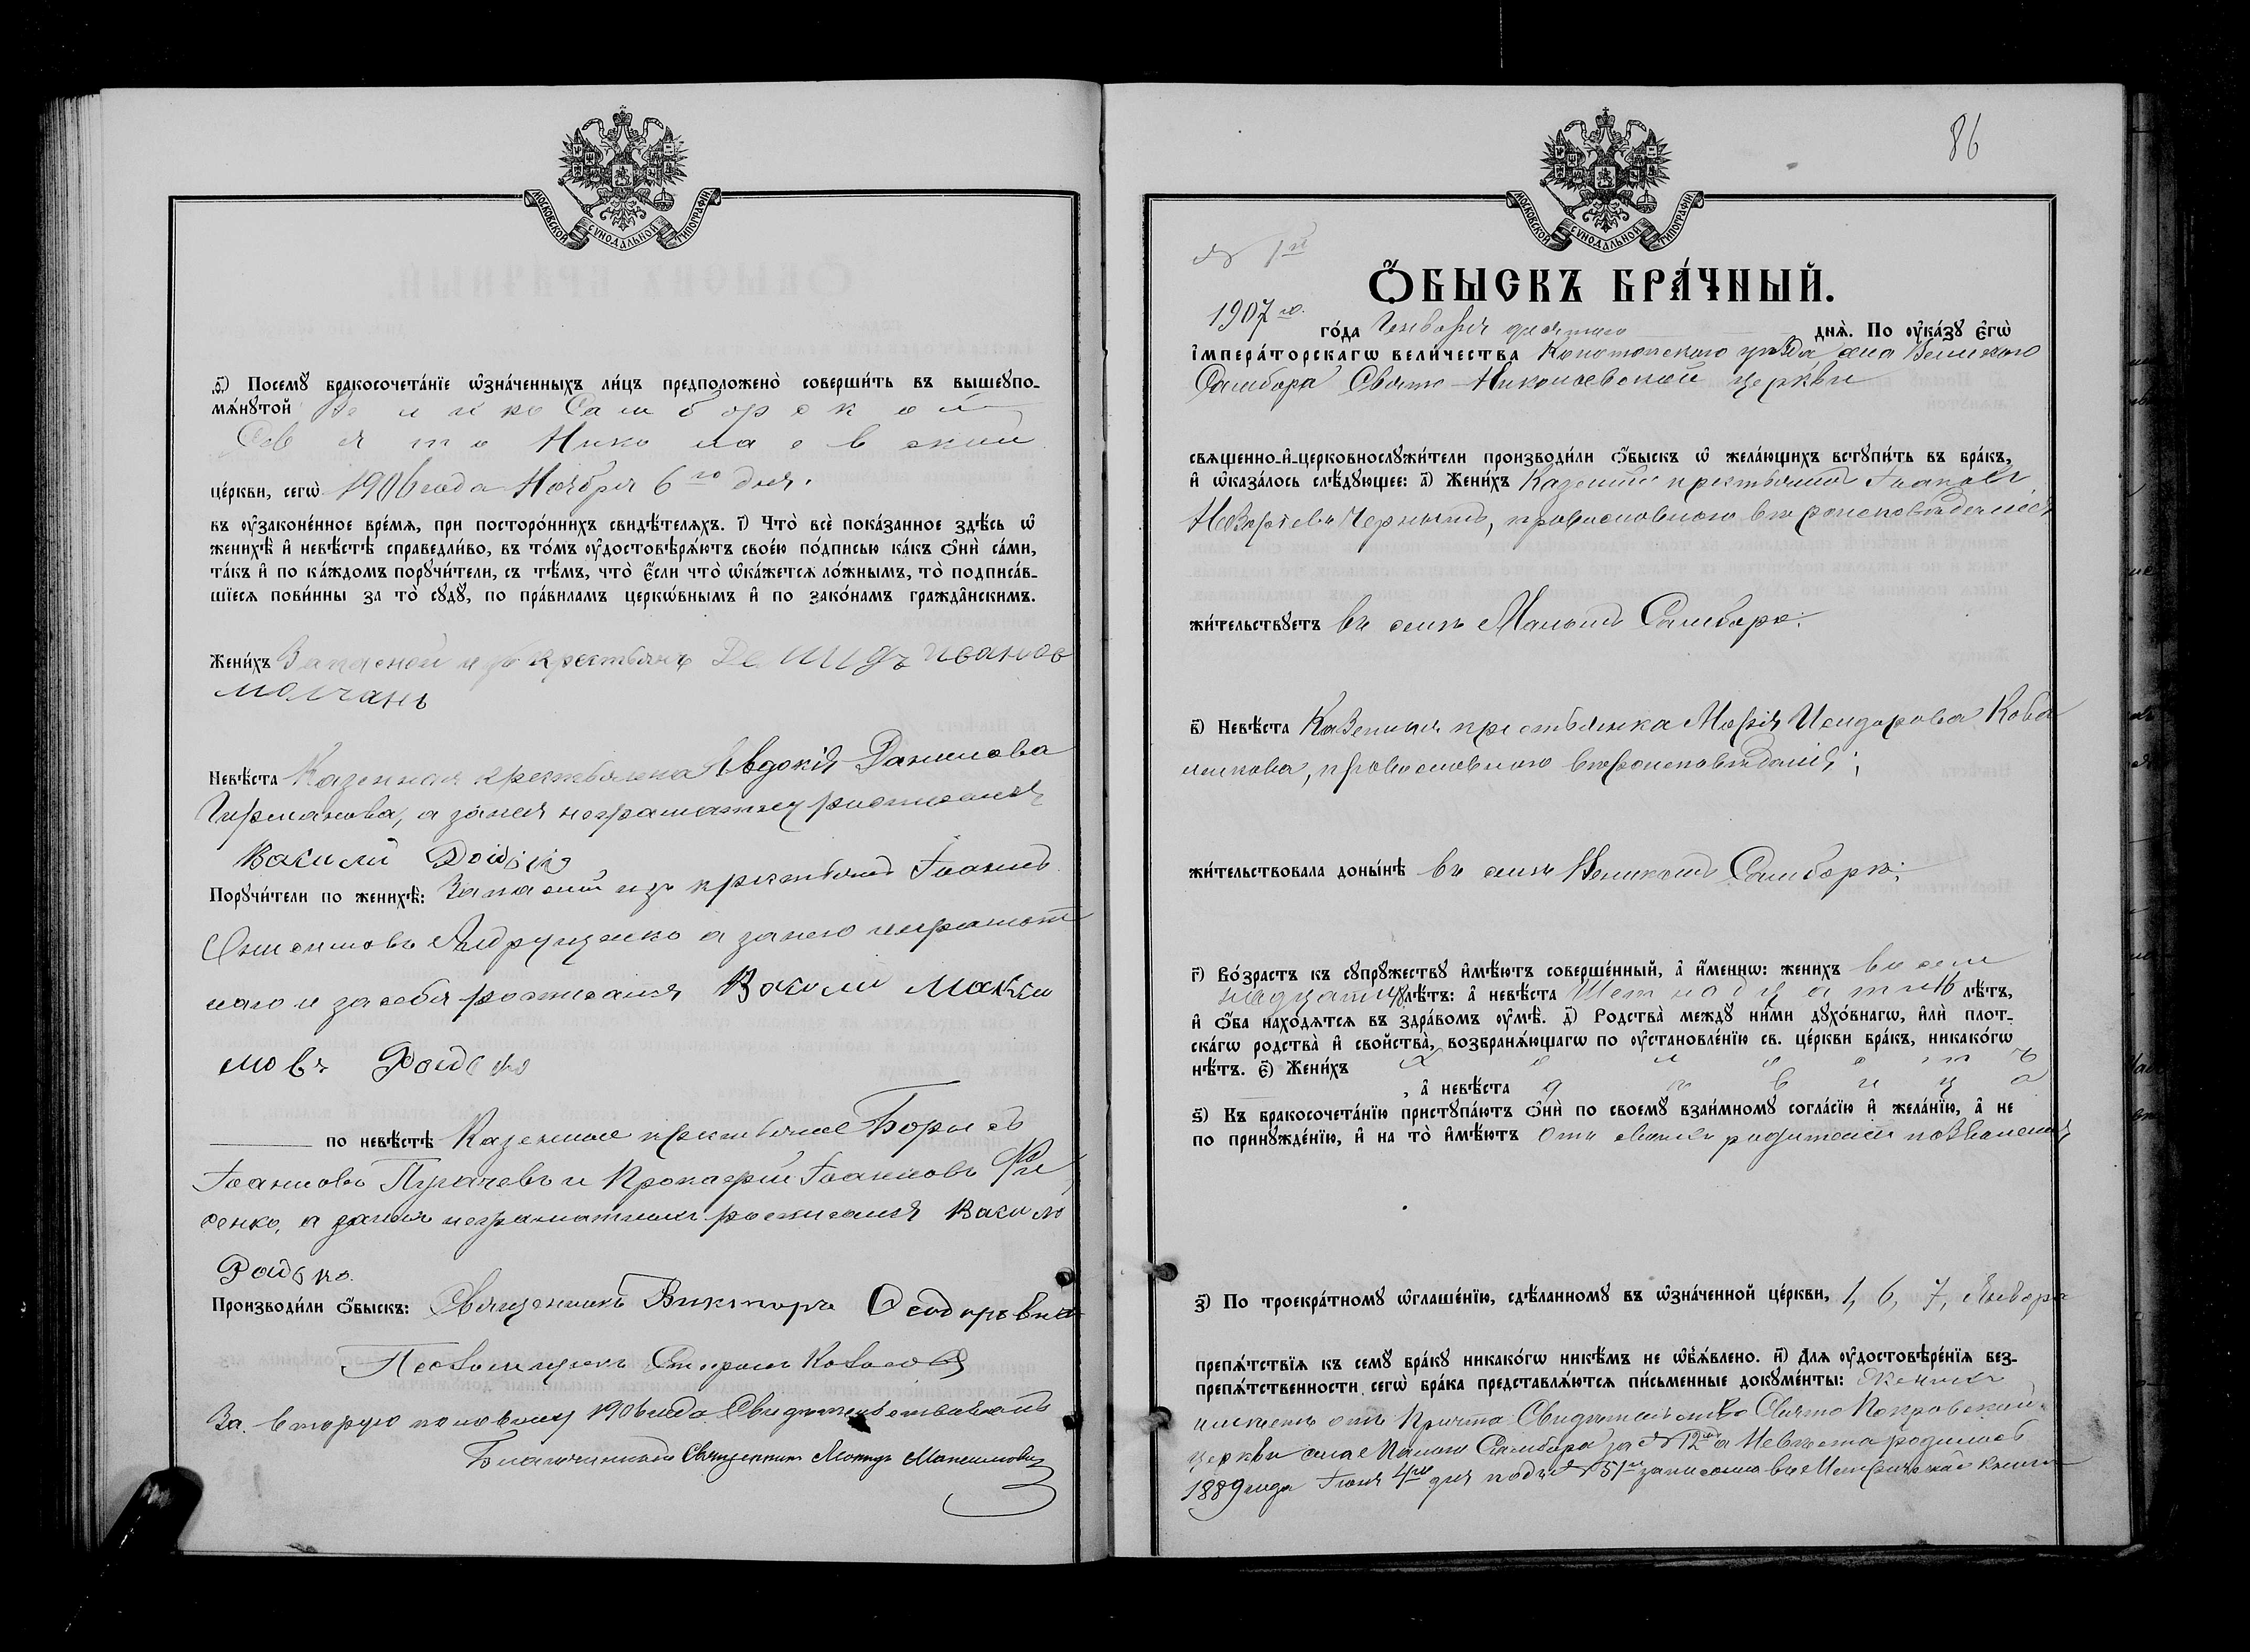 МОСКОВСКОЙ СѴНОДАЛЬНОЙ ТИПОГРАФІИ.
ѳ҃) Посемꙋ бракосочета́нїе ѡ҆зна́ченныхъ ли́цъ предположено̀ соверши́ть въ вышеꙋпо-
мѧ́нꙋтой Велико Самборской
Свято Николаевской
це́ркви, сегѡ̀ 1906 года Ноября 6го дня.
въ ᲂу҆законе́нное вре́мѧ, при посторо́ннихъ свидѣ́телѧхъ. і҃) Что̀ всѐ пока́занное здѣ́сь ѡ҆
женихѣ̀ и҆ невѣ́стѣ справедли́во, въ то́мъ ᲂу҆достовѣрѧ́ютъ свое́ю по́дписью ка́къ ѻ҆нѝ са́ми,
та́къ и҆ по ка́ждомъ порꙋчи́тели, съ тѣ́мъ, что̀ є҆́сли что̀ ѡ҆ка́жетсѧ ло́жнымъ, то̀ подписа́в-
шїесѧ пови́нны за то̀ сꙋдꙋ̀, по пра́виламъ церкѡ́внымъ и҆ по зако́намъ гражда̂нскимъ.
Жени́хъ Запасной изъ крестьянъ Демидъ Иванов
Молчанъ
Невѣ́ста Казенная крестьянка Евдокія Данилова
Германова, а за нея неграмотну росписался
Васили
Порꙋчи́тели по женихѣ̀: Запасний изъ крестьянъ Іоаннъ
Андрущенко а за него неграмот
наго и за себя росписался Васили Макси
мовъ
по невѣ́стѣ Казенные крестьяне Борисъ
Іоанновъ Пугачевъ и Прокофій Іоанновъ
сенко, а за нихъ неграмотныхъ росписался Васили
Производи́ли ѻ҆́быскъ: Священникъ Викторъ
Псаломщикъ
За вторую половину 1906 года Свидетельствовалъ
Благочинный Священникъ Максимовичъ
86
МОСКОВСКОЙ СѴНОДАЛЬНОЙ ТИПОГРАФІИ.
№ 1й
Ѻ҆́БЫСКЪ БРА́ЧНЫЙ.
1907го.
го́да Генваря девятого днѧ̀. По ᲂу҆ка́зꙋ є҆гѡ̀
і҆мпера́торскагѡ вели́чества Конотопскаго уѣзда села Великаго
Самбора Свято-Николаевской церкви
свѧщенно-и҆-церковнослꙋжи́тели производи́ли ѻ҆́быскъ ѡ҆ жела́ющихъ встꙋпи́ть въ бра́къ,
и҆ ѡ҆каза́лось слѣ́дꙋющее: а҃) Жени́хъ Казенный крестьянинъ Іаковъ
православного вѣроисповѣданія
жи́тельствꙋетъ въ селѣ Маломъ Самборѣ.
в҃) Невѣ́ста Казенная крестьянка Марія Исидорова Кова
ленкова, православного вѣроисповѣданія;
жи́тельствовала доны́нѣ въ селѣ Великомъ Самборѣ;
г҃) Во́зрастъ къ сꙋпрꙋ́жествꙋ и҆мѣ́ютъ соверше́нный, а҆ и҆́меннѡ: жени́хъ восем
надцати лѣ́тъ: а҆ невѣ́ста Шестнадцати лѣ́тъ,
и҆ ѻ҆́ба нахо́дѧтсѧ въ здра́вомъ ᲂу҆мѣ̀. д҃) Родства̀ междꙋ̀ ни́ми дꙋхо́внагѡ, и҆лѝ плот-
ска́гѡ родства̀ и҆ свойства̀, возбранѧ́ющагѡ по ᲂу҆становле́нїю св. це́ркви бра́къ, никако́гѡ
нѣ́тъ. є҃) Жени́хъ холостъ
, а҆ невѣ́ста дѣвица
ѕ҃) Къ бракосочета́нїю пристꙋпа́ютъ ѻ҆нѝ по своемꙋ̀ взаи́мномꙋ согла́сїю и҆ жела́нїю, а҆ не
по принꙋжде́нїю, и҆ на то̀ и҆мѣ́ютъ отъ своихъ родителей позволеніе
з҃) По троекра́тномꙋ ѡ҆глаше́нїю, сдѣ́ланномꙋ въ ѡ҆зна́ченной це́ркви, 1, 6, 7, Января
препѧ́тствїѧ къ семꙋ̀ бра́кꙋ никако́гѡ никѣ́мъ не ѡ҆б̾ѧ́влено. и҃) Длѧ ᲂу҆достовѣре́нїѧ без-
препѧ́тственности сегѡ̀ бра́ка представлѧ́ютсѧ пи́сьменные докꙋме́нты: Женихъ
имѣетъ отъ Причта Свидѣтельство Свято Покровской
церкви села Малого Самбора за № 12 а Невеста родилась
1889 года Іюня 4го дня подъ № 51 записана въ Метрическ книгѣ